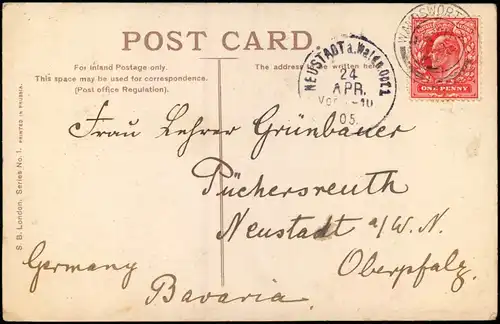 POST CARD
For Inland Postage only.
This space may be used for correspondence.
(Post office Regulation).
The address
be written here.
NEUSTADT a. Waldn.
24
APR.
05.
WANDSWORTH
ONE PENNY
S. B. London, Series No. 1. PRINTED IN PRUSSIA.
Frau Lehrer Grünbauer
Püchersreuth
Neustadt a/W. N.
Oberpfalz
Germany
Bavaria